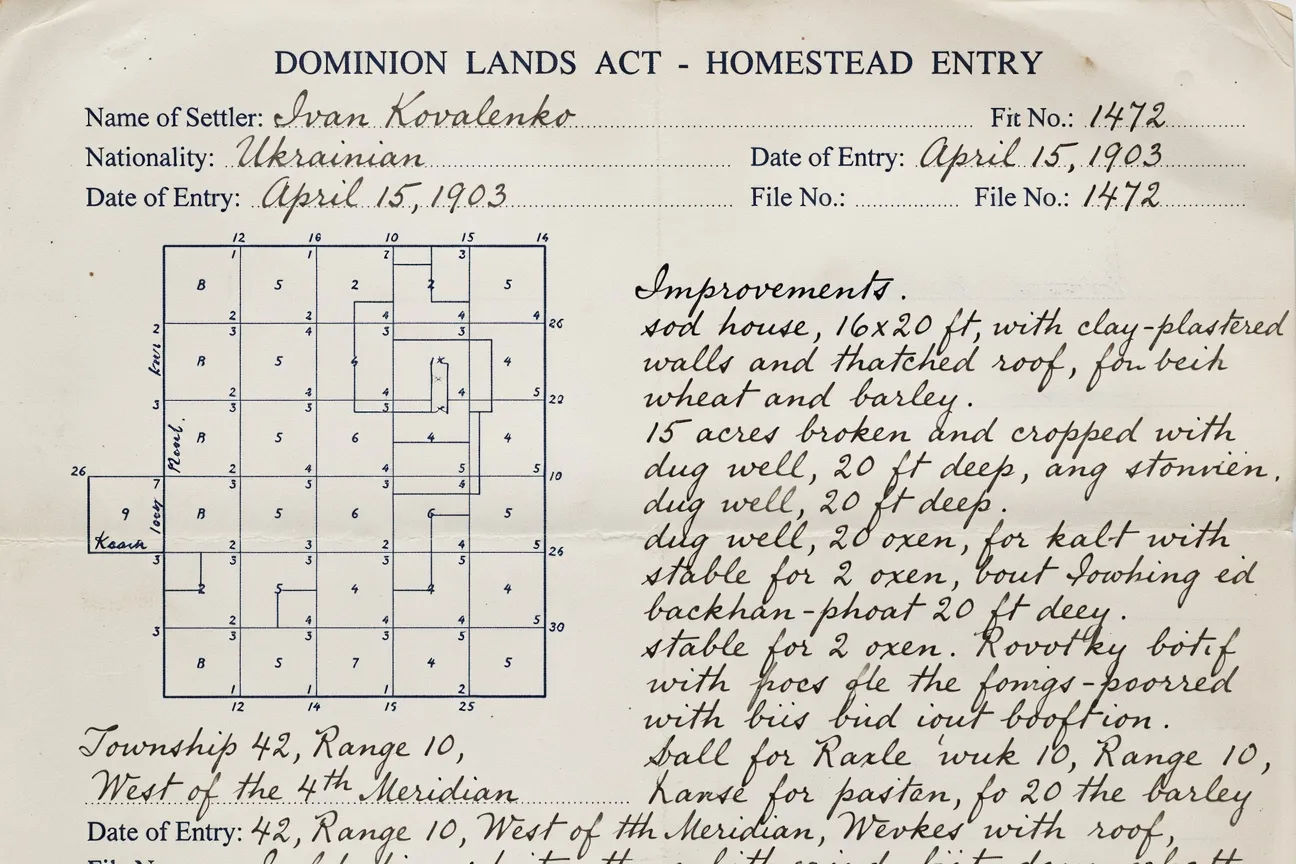 DOMINION LANDS ACT - HOMESTEAD ENTRY
Name of Settler: Ivan Kovalenko Fit No.: 1472
Nationality: Ukrainian Date of Entry: April 15, 1903
Date of Entry: April 15, 1903 File No.: File No.: 1472
12 16 10 15 14
1 1 2 3
B 5 2 2 5
2 2 4 4 4 26
2 3 4 3
B 5 4 4
2 4 4 5 20
3 3 3 3
B 5 6 4 4
26 2 4 4 5 5 10
7 3 3 3 4
9 B 5 6 6 5
2 3 2 4 5 26
3 3 3 3 5
2 5 4 4 4
2 4 4 4 5 30
3 3 3 3 5
B 5 7 4 5
1 1 1 2
12 14 15 25
Improvements.
sod house, 16x20 ft, with clay-plastered
walls and thatched roof, fou beih
wheat and barley.
15 acres broken and cropped with
dug well, 20 ft deep, ang stonvien.
dug well, 20 ft deep.
dug well, 20 oxen, for kalt with
stable for 2 oxen, bout ed
backhan-phoat 20 ft deey.
stable for 2 oxen. botif
with the
with biis bud iout booftion.
for Raxle wuk 10, Range 10,
for pastan, fo 20 the barley
Township 42, Range 10,
West of the 4th Meridian
Date of Entry: 42, Range 10, West of tth Meridian, with roof,